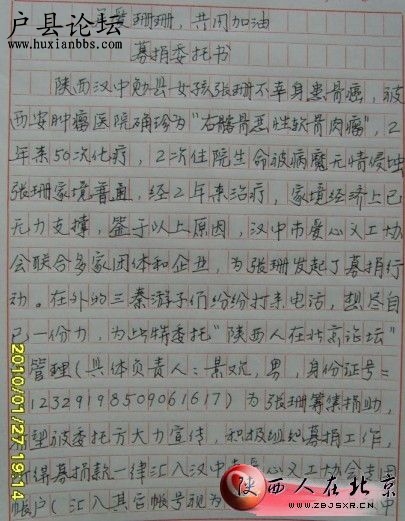 户县论坛
www.huxianbbs.com
爱珊珊,共同加油
募捐委托书
陕西汉中勉县女孩张珊不幸身患骨癌,被
西安肿瘤医院确诊为"右髂骨恶性软骨肉瘤",2
年来50次化疗,2次住院生命被病魔无情侵蚀
张珊家境普通,经2年来治疗,家境经济上已
无力支撑,鉴于以上原因,汉中市爱心义工协
会联合多家团体和企业,为张珊发起了募捐行
动。在外的三秦游子们纷纷打来电话,想尽自
己一份力,为此特委托"陕西人在北京论坛"
管理(具体负责人:景 ,男,身份证号=
12329198509061617)为张珊筹集捐助,
望被委托方大力宣传,积极 募捐工作,
得募捐款一律汇入汉中市爱心义工协会专用
帐户(汇入其它帐号视为 中
2010/01/27 19:14
陕西人在北京
WWW.ZBJSXR.CN